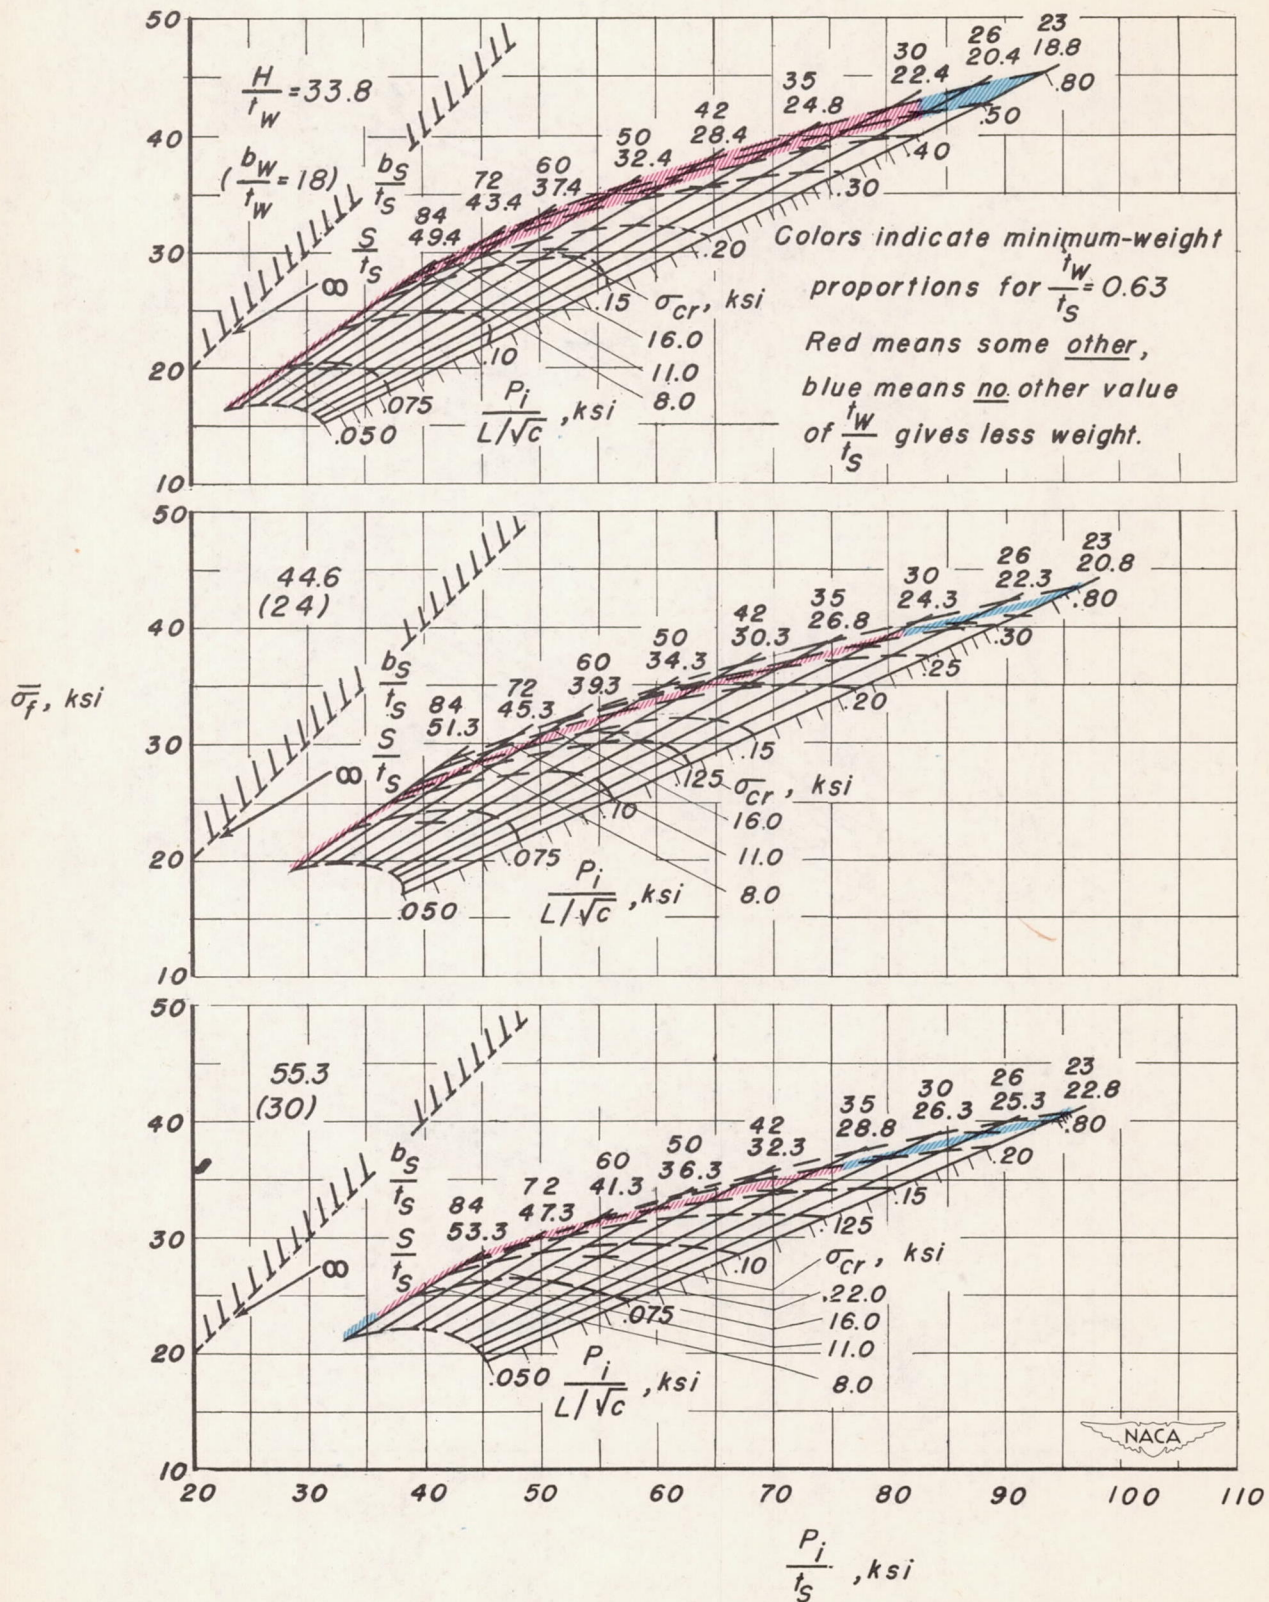 50
40
30
20
10
H/t_W = 33.8
(b_W/t_W = 18)
b_S/t_S
S/t_S
∞
84
49.4
72
43.4
60
37.4
50
32.4
42
28.4
35
24.8
30
22.4
26
20.4
23
18.8
.80
.50
.40
.30
.20
.15
.10
.075
.050
P_i/(L/√c) , ksi
σ_cr, ksi
16.0
11.0
8.0
Colors indicate minimum-weight
proportions for t_W/t_S = 0.63
Red means some other,
blue means no other value
of t_W/t_S gives less weight.
σ̄_f, ksi
50
40
30
20
10
44.6
(24)
b_S/t_S
S/t_S
∞
84
51.3
72
45.3
60
39.3
50
34.3
42
30.3
35
26.8
30
24.3
26
22.3
23
20.8
.80
.30
.25
.20
.15
.125
.10
.075
.050
P_i/(L/√c) , ksi
σ_cr, ksi
16.0
11.0
8.0
50
40
30
20
10
55.3
(30)
b_S/t_S
S/t_S
∞
84
53.3
72
47.3
60
41.3
50
36.3
42
32.3
35
28.8
30
26.3
26
25.3
23
22.8
.80
.20
.15
.125
.10
.075
.050
P_i/(L/√c) , ksi
σ_cr, ksi
22.0
16.0
11.0
8.0
NACA
20 30 40 50 60 70 80 90 100 110
P_i/t_S , ksi